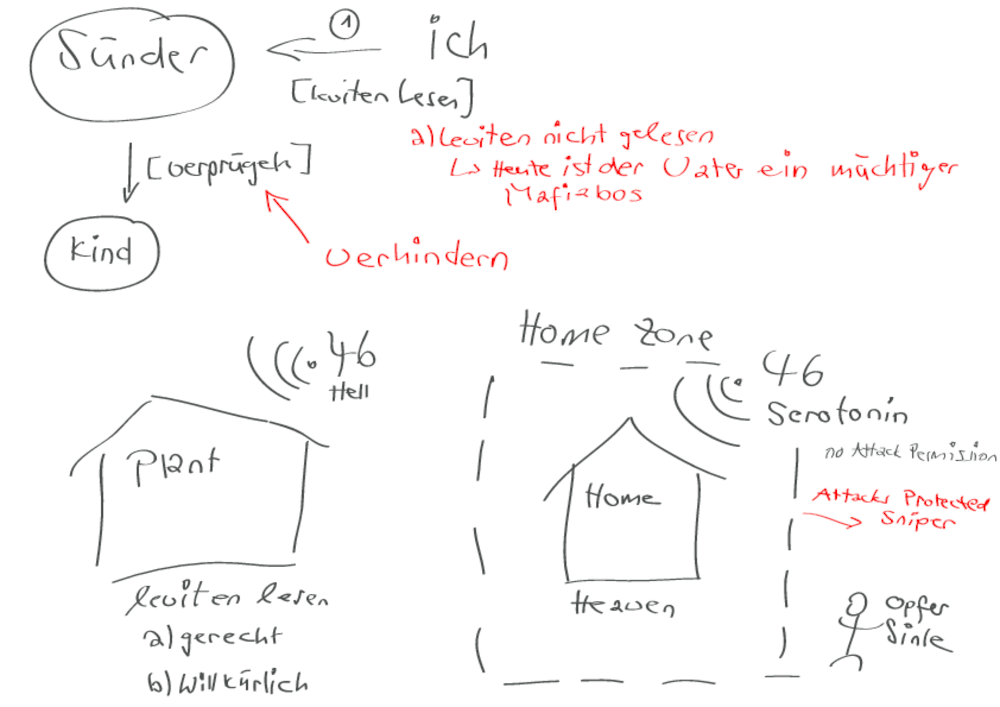 Sünder
①
ich
[Leviten Lesen]
a) Leviten nicht gelesen
↳ Heute ist der Vater ein mächtiger
Mafiabos
[verprügeln]
Kind
verhindern
46
Hell
Plant
Leviten lesen
a) gerecht
b) Willkürlich
Home Zone
46
Serotonin
no Attack Permission
Attacks Protected
→ Sniper
Home
Heaven
Opfer